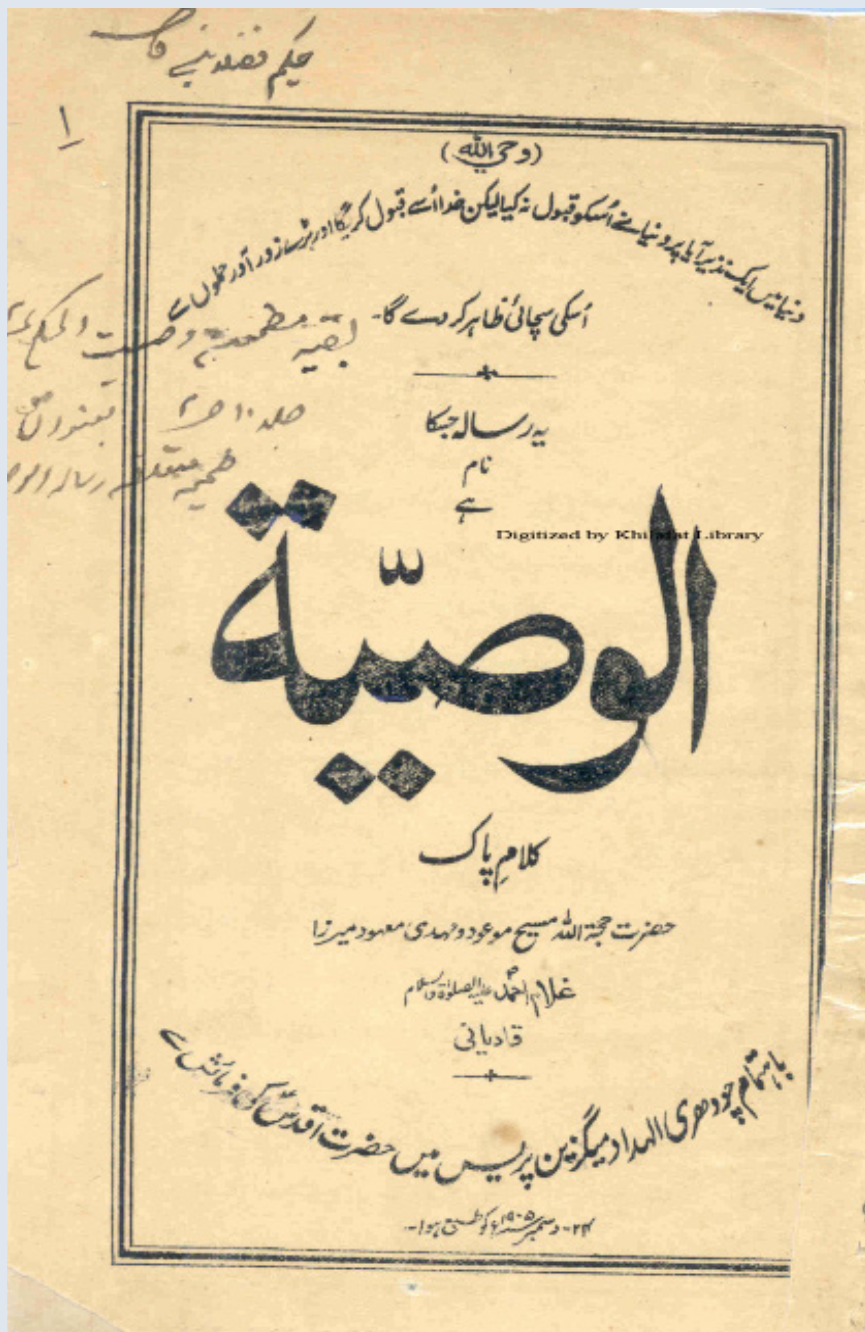 حکیم
۱
(وحی اللہ)
دنیا میں ایک نذیر آیا پر دنیا نے اُسکو قبول نہ کیا لیکن خدا اُسے قبول کریگا اور بڑے زور آور حملوں سے
اُسکی سچائی ظاہر کر دے گا۔
بقیہ وصیت الحکم
جلد ۱۰
ضمیمہ متعلقہ رسالہ
یہ رسالہ جسکا
نام
ہے
Digitized by Khilafat Library
الوصیّة
کلامِ پاک
حضرت حجۃ اللہ مسیح موعود و مہدی معہود میرزا
غلام احمدؐ علیہ الصلوٰۃ والسلام
قادیانی
باہتمام چودھری الہداد میگزین پریس میں حضرت اقدسؑ کی فرمائش سے
۲۴- دسمبر سنہ ۱۹۰۵ء کو طبع ہوا۔-